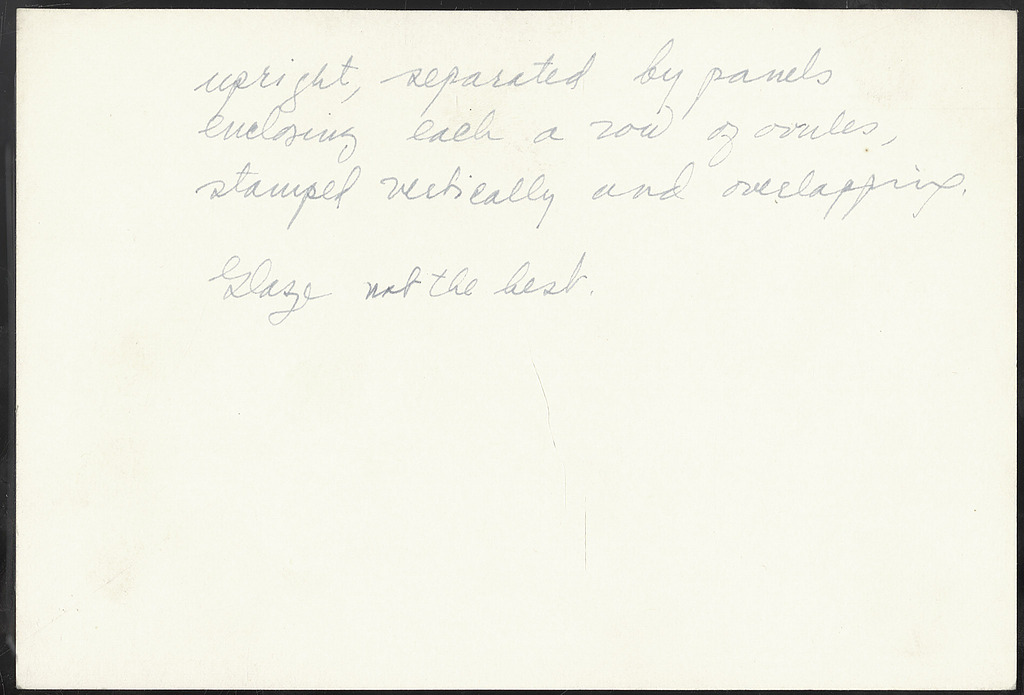 upright, separated by panels
enclosing each a row of ovules,
stamped vertically and overlapping.
Glaze not the best.